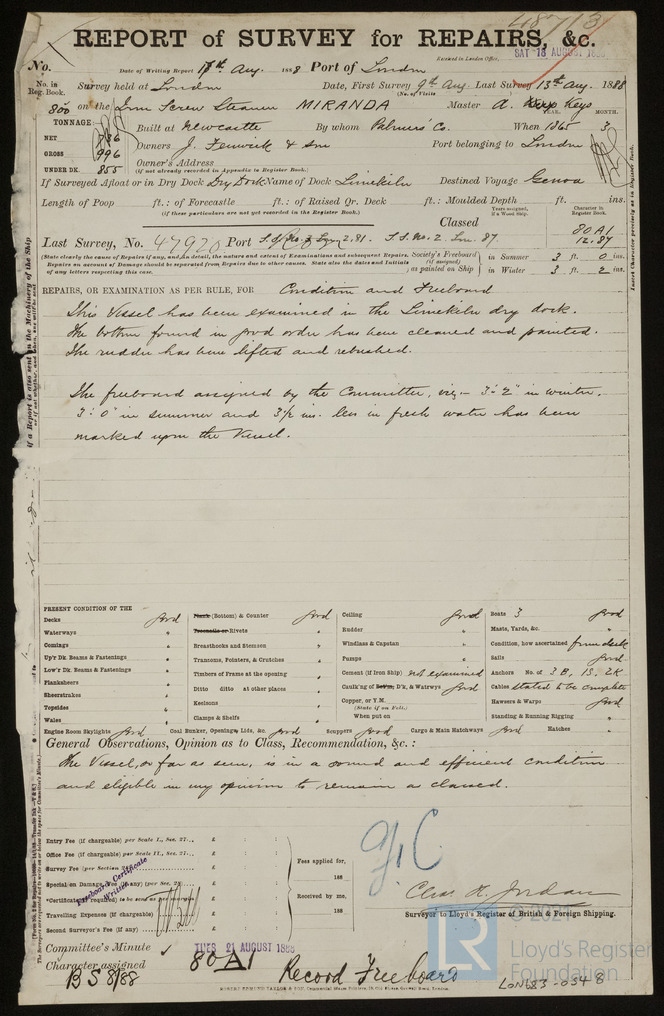 48713
REPORT of SURVEY for REPAIRS, &c.
Received in London Office,
SAT 18 AUGUST 1888
No.
Date of Writing Report 17th Aug. 1888 Port of London
No. in Reg. Book.
Survey held at London Date, First Survey 9th Aug Last Survey 13th Aug. 1888
(No. of Visits
800 on the Iron Screw Steamer MIRANDA Master A. Keys
TONNAGE:
YEAR. MONTH.
Built at Newcastle By whom Palmers' Co. When 1865 3
NET 786
GROSS 996
Owners J. Fenwick & Son Port belonging to London
UNDER DK. 855
Owner's Address
(if not already recorded in Appendix to Register Book.)
If Surveyed Afloat or in Dry Dock Dry Dock Name of Dock Limekiln Destined Voyage Genoa
Length of Poop ft.: of Forecastle ft.: of Raised Qr. Deck ft.: Moulded Depth ft. ins.
(if these particulars are not yet recorded in the Register Book.)
Classed
Years assigned, if a Wood Ship.
Character in Register Book.
80A1
12.87
Last Survey, No. 47920 Port
2.81. S.S. No. 2. Lon. 87
(State clearly the cause of Repairs if any, and, in detail, the nature and extent of Examinations and subsequent Repairs.
Repairs on account of Damage should be separated from Repairs due to other causes. State also the dates and Initials
of any letters respecting this case.
Society's Freeboard (if assigned) as painted on Ship
in Summer 3 ft. 0 ins.
in Winter 3 ft. 2 ins.
REPAIRS, OR EXAMINATION AS PER RULE, FOR Condition and Freeboard
This Vessel has been examined in the Limekiln dry dock.
The bottom found in good order has been cleaned and painted.
The rudder has been lifted and rebushed.
The freeboard assigned by the Committee, viz - 3'-2" in winter.
3'-0" in summer and 3½ ins. less in fresh water has been
marked upon the Vessel.
PRESENT CONDITION OF THE
Decks good
Waterways "
Comings "
Up'r Dk. Beams & Fastenings "
Low'r Dk. Beams & Fastenings "
Planksheers "
Sheerstrakes "
Topsides "
Wales "
Plank (Bottom) & Counter good
Treenails or Rivets "
Breasthooks and Stemson "
Transoms, Pointers, & Crutches "
Timbers of the Frame at the opening "
Ditto ditto at other places "
Keelsons "
Clamps & Shelfs "
Ceiling good
Rudder "
Windlass & Capstan "
Pumps "
Cement (if Iron Ship) not examined
Caulk'ng of Bot'm, D'k, & Watrwys good
Copper, or Y.M.
(State if on Felt.)
When put on
Boats 3 good
Masts, Yards, &c. "
Condition, how ascertained from deck
Sails good
Anchors No. of 3 B, 1 S, 2 K
Cables stated to be complete
Hawsers & Warps good
Standing & Running Rigging "
Engine Room Skylights good Coal Bunker, Openings, Lids, &c. good Scuppers good Cargo & Main Hatchways good Hatches "
General Observations, Opinion as to Class, Recommendation, &c. :
The Vessel, so far as seen, is in a sound and efficient condition
and eligible in my opinion to remain as classed.
Entry Fee (if chargeable) per Scale I., Sec. 27... £ : :
Office Fee (if chargeable) per Scale II., Sec. 27... £ : :
Survey Fee (per Section 28) £ : :
Special on Damage Fee (if any) (per Sec. 28) £ : :
Travelling Expenses (if chargeable) £ : :
Second Surveyor's Fee (if any) £ : :
Freeboard Certificate Written
Fees applied for,
188
Received by me,
188
Chas. H. Jordan
Surveyor to Lloyd's Register of British & Foreign Shipping.
Committee's Minute TUES 21 AUGUST 1888
Character assigned 80A1
Record Freeboard
B S 8/88
© 2021
LR
Lloyd's Register
Foundation
LON683-0348